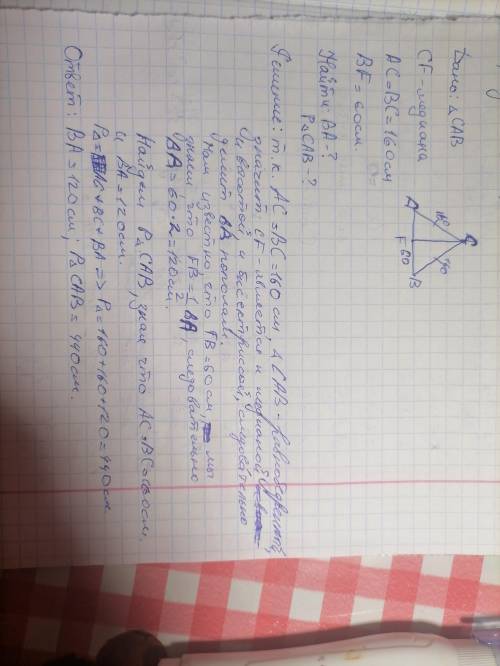 Дано: △CAB
CF-медиана
AC=BC=160см
BF=60см.
Найти: BA-?
P△CAB-?
C
160
160
A
F 60 B
Решение: т.к. AC=BC=160 см, △CAB-равнобедренный,
значит: CF-является и медианой
и высотой, и биссектрисой, следовательно
делит BA пополам.
Нам известно, что FB=60см, мы
знаем что FB=1/2 BA, следовательно
BA=60·2=120см.
Найдем P△CAB, зная что AC=BC=160см.
и BA=120см.
P△=AC+BC+BA=>P△=160+160+120=440см
Ответ: BA=120см; P△CAB=440см.